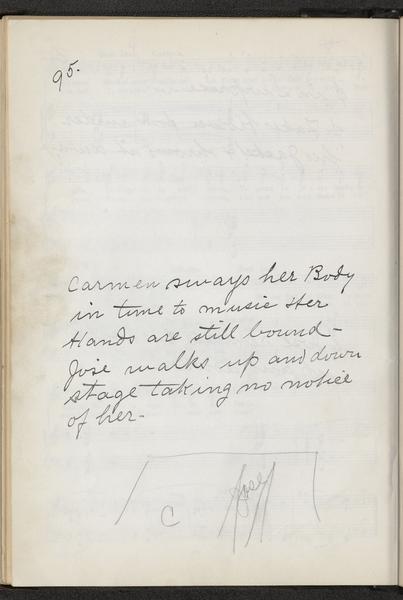 95.
Carmen sways her Body
in time to music Her
Hands are still bound-
José walks up and down
stage taking no notice
of her-
José
C